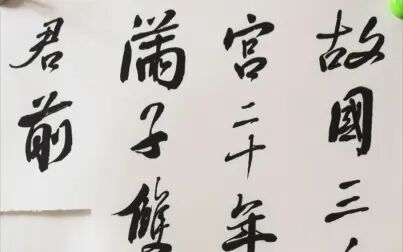 故國三
宮二十年
满子雙
君前